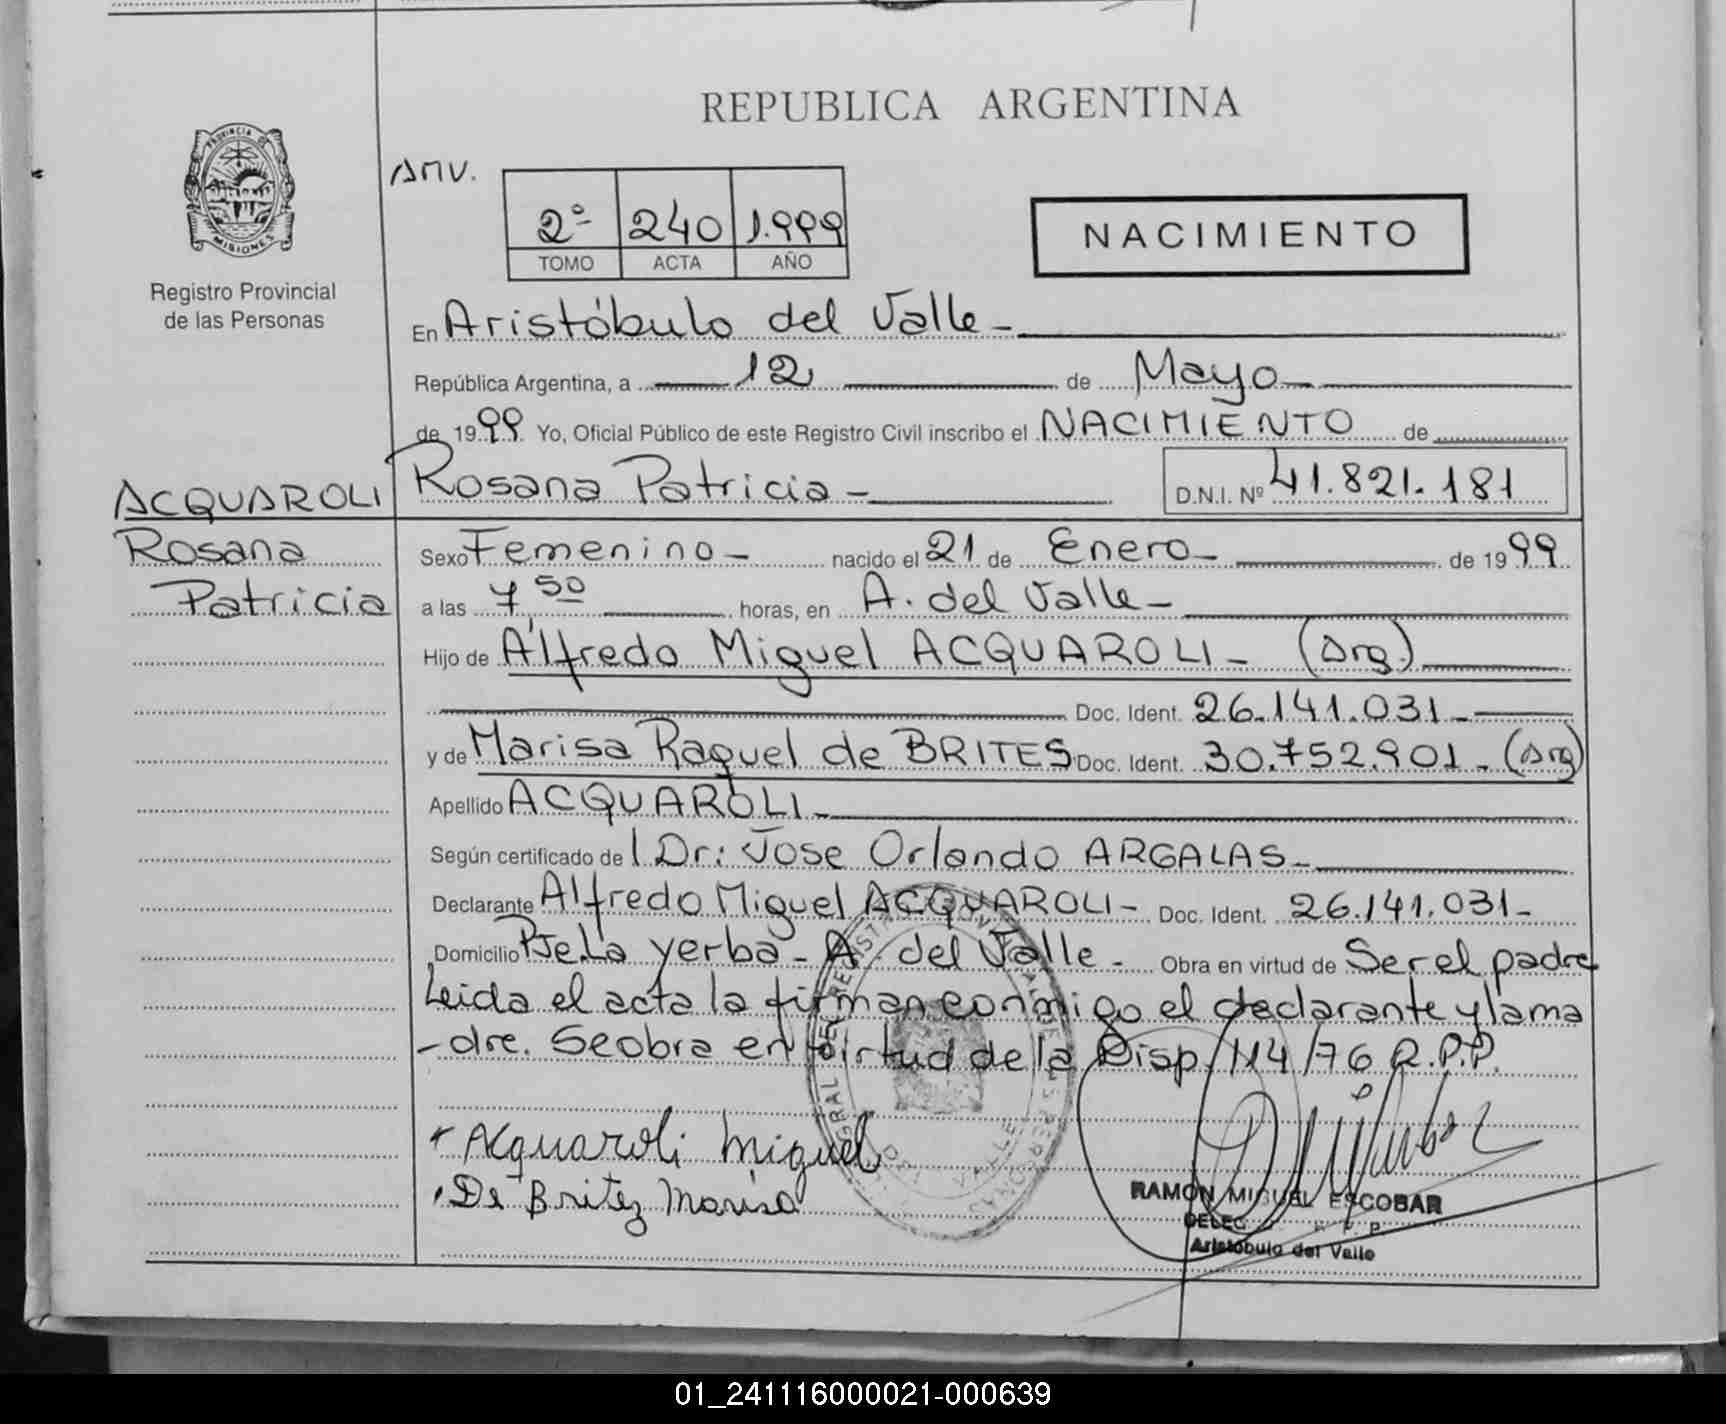 REPUBLICA ARGENTINA
PROVINCIA DE MISIONES
Registro Provincial
de las Personas
AMV.
2º 240 1.999
TOMO ACTA AÑO
NACIMIENTO
En Aristóbulo del Valle -
República Argentina, a 12 de Mayo
de 1999 Yo, Oficial Público de este Registro Civil inscribo el NACIMIENTO de
Rosana Patricia - D.N.I. Nº 41.821.181
ACQUAROLI
Rosana
Patricia
Sexo Femenino - nacido el 21 de Enero - de 1999
a las 7 50 horas, en A. del Valle -
Hijo de Alfredo Miguel ACQUAROLI - (Arg)
Doc. Ident. 26.141.031 -
y de Marisa Raquel de BRITES Doc. Ident. 30.752.901 - (Arg)
Apellido ACQUAROLI -
Según certificado de l Dr: Jose Orlando ARGALAS -
Declarante Alfredo Miguel ACQUAROLI - Doc. Ident. 26.141.031 -
Domicilio Pje. La yerba - A. del Valle - Obra en virtud de Ser el padre
Leida el acta la firman conmigo el declarante y la ma
- dre. Se obra en virtud de la Disp. 114/76 R.P.P.
Acquaroli Miguel
De Britez Marisa
RAMON MIGUEL ESCOBAR
DELEG R. P. P.
Aristóbulo del Valle
01_241116000021-000639